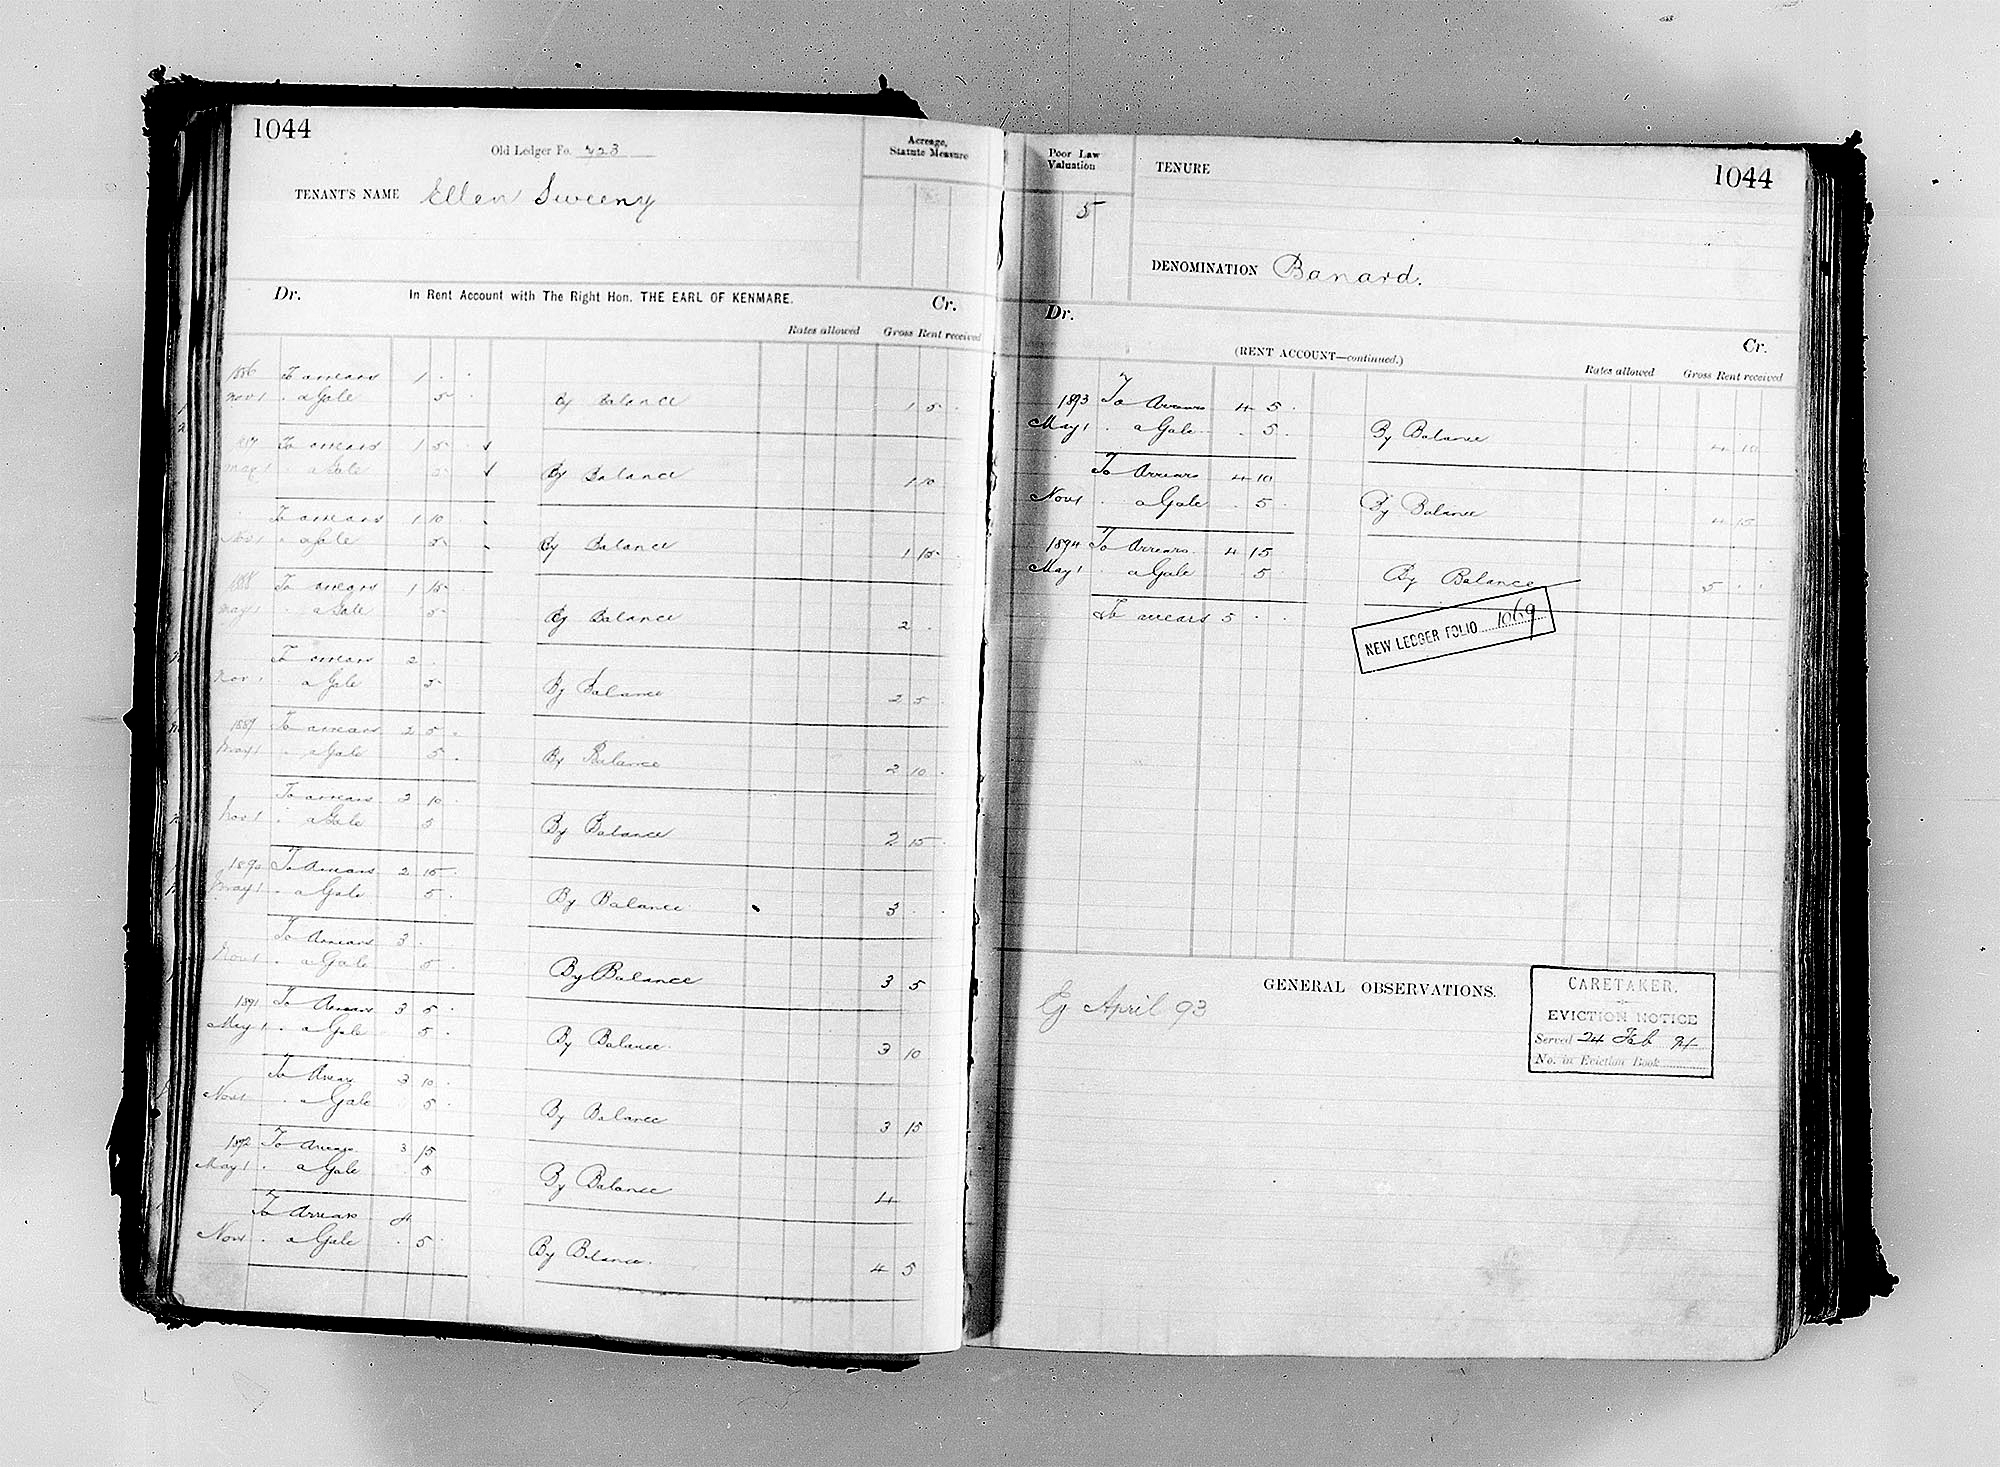 1044
Old Ledger Fo. 423
Acreage,
Statute Measure
TENANT'S NAME Ellen Sweeny
Dr. In Rent Account with The Right Hon. THE EARL OF KENMARE. Cr.
Rates allowed Gross Rent received
1886 To arrears 1 . .
Nov 1 . a Gale 5 . By Balance 1 5 .
1887 To arrears 1 5 .
May 1 . a Gale 5 . By Balance 1 10
To arrears 1 10
Nov 1 . a Gale 5 By Balance 1 15 .
1888 To arrears 1 15
May 1 . a Gale 5 By Balance 2 .
To arrears 2 .
Nov 1 . a Gale 5 By Balance 2 5 .
1889 To arrears 2 5 .
May 1 . a Gale 5 . By Balance 2 10 .
To arrears 2 10
Nov 1 . a Gale 5 By Balance 2 15 .
1890 To Arrears 2 15 .
May 1 . a Gale 5 . By Balance 3 . .
To Arrears 3 .
Nov 1 . a Gale 5 . By Balance 3 5
1891 To Arrears 3 5 .
May 1 . a Gale 5 . By Balance 3 10
To Arrears 3 10 .
Nov 1 . a Gale 5 . By Balance 3 15
1892 To Arrears 3 15
May 1 . a Gale . 5 By Balance 4
To Arrears 4
Nov 1 . a Gale . 5 . By Balance 4 5
Poor Law
Valuation
5
TENURE
1044
DENOMINATION Banard.
Dr. (RENT ACCOUNT—continued.) Cr.
Rates allowed Gross Rent received
1893 To Arrears 4 5 .
May 1 . a Gale . 5 . By Balance 4 10
To Arrears 4 10
Nov 1 . a Gale . 5 . By Balance 4 15
1894 To Arrears 4 15
May 1 . a Gale . 5 . By Balance 5 . .
To arrears 5 . .
NEW LEDGER FOLIO 1069
GENERAL OBSERVATIONS.
Eg April 93
CARETAKER.
EVICTION NOTICE
Served 24 Feb 94
No. in Eviction Book